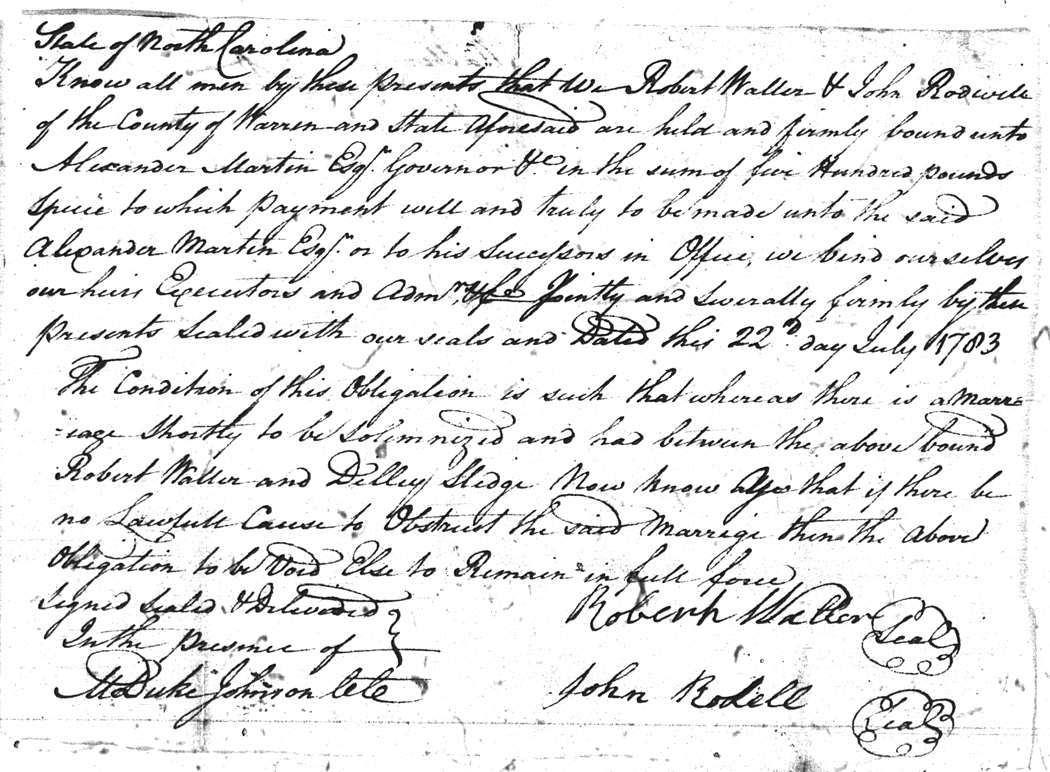 State of North Carolina
Know all men by these presents that We Robert Waller & John Rodwell
of the County of Warren and State Aforesaid are held and firmly bound unto
Alexander Martin Esqr. Governor &c in the sum of five Hundred pounds
Specie to which payment well and truly to be made unto the said
Alexander Martin Esqr. or to his Successors in Office, we bind ourselves
our heirs Executors and Admrs, Jointly and Severally firmly by these
presents Sealed with our seals and Dated this 22d day July 1783
The Condition of this Obligation is such that whereas there is a Marr=
=iage Shortly to be Solemnized and had between the above bound
Robert Waller and Delley Sledge Now know Ye that if there be
no Lawfull Cause to Obstruct the said Marrige then the Above
Obligation to be Void Else to Remain in full force
Signed Sealed & Delivered
In the presence of
Robert Waller Seal
M Duke Johnson
John Rodell Seal